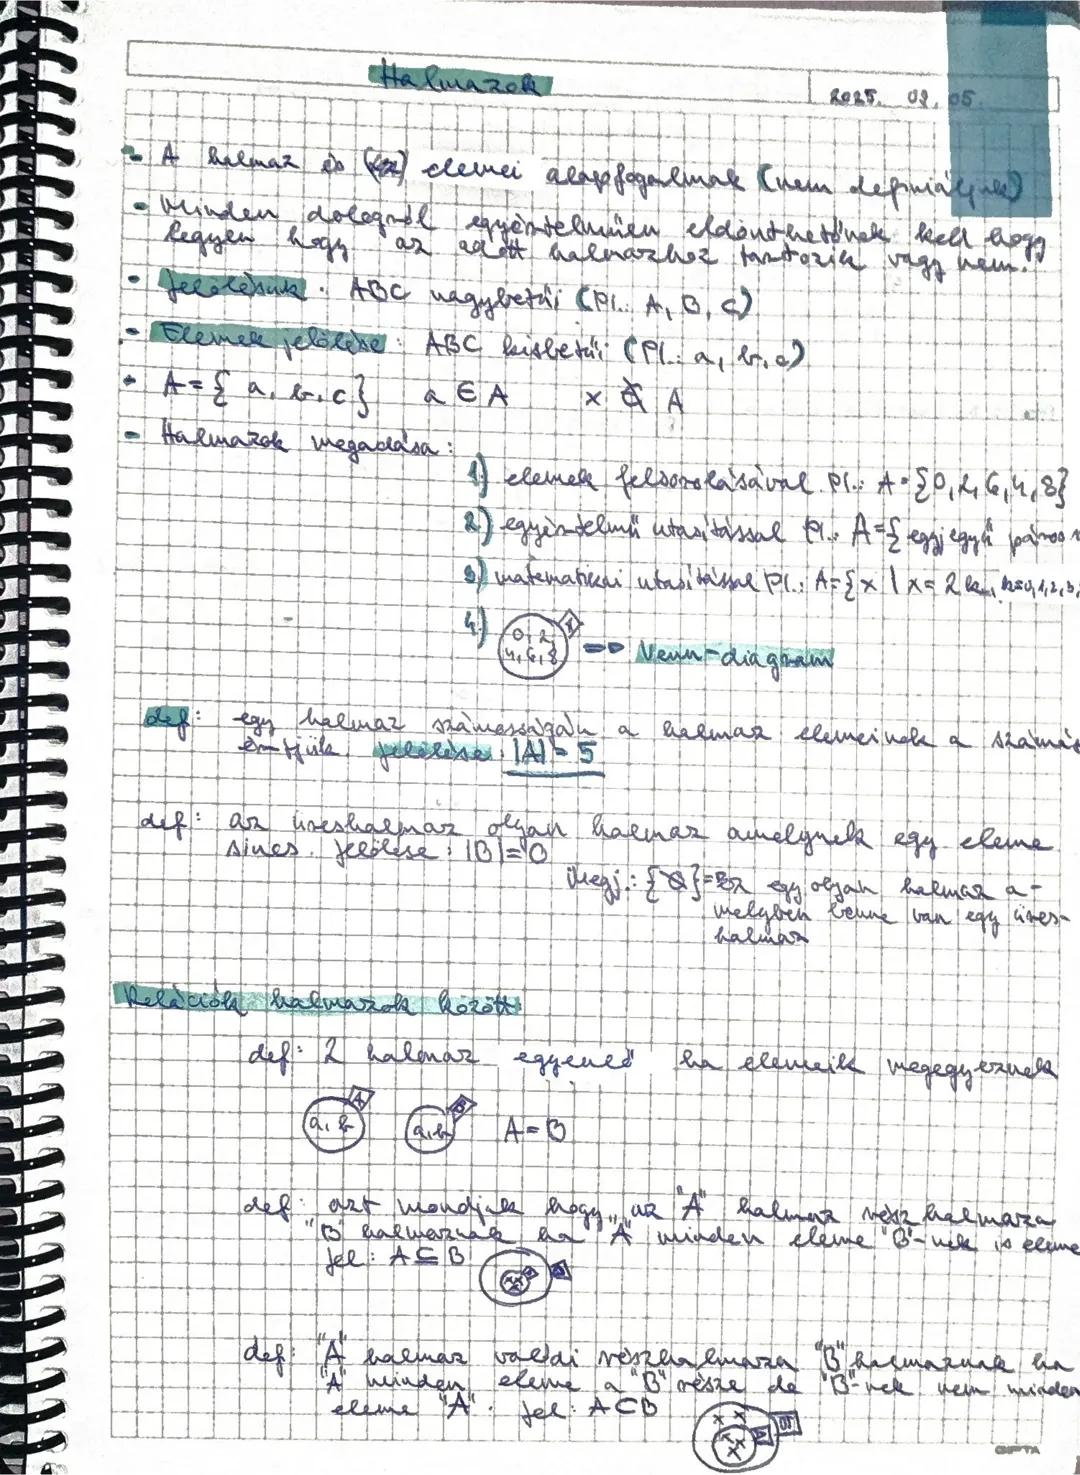 Halmazok
2025. 09. 05.
- A halmaz és (az) elemei alapfogalmak (nem definiáljuk)
- Minden dologról egyértelműen eldönthetőnek kell hogy
legyen hogy az adott halmazhoz tartozik vagy nem.
- Jelölésük: ABC nagybetűi (Pl.: A, B, C)
- Elemek jelölése: ABC kisbetűi (Pl.: a, b, c)
- A = { a, b, c } a ∈ A x ∉ A
- Halmazok megadása:
1.) elemek felsorolásával Pl.: A={0,2,6,4,8}
2.) egyértelmű utasítással Pl.: A={ egyjegyű páros
3.) matematikai utasítással Pl.: A={x | x=2k, k=0,1,2,3,
4.) 0,2, 4,6,8 ⇒ Venn-diagram
def: egy halmaz számosságán a halmaz elemeinek a számát
értjük jelölése: |A| = 5
def: az üreshalmaz olyan halmaz amelynek egy eleme
sincs. Jelölése: |B|=0
Megj.: {∅}=Ez egy olyan halmaz a-
melyben benne van egy üres-
halmaz
Relációk halmazok között
def: 2 halmaz egyenlő ha elemeik megegyeznek
A B
a, b a, b A=B
def: azt mondjuk hogy az "A" halmaz rész halmaza
"B" halmaznak ha "A" minden eleme "B"-nek is eleme
jel: A⊆B
def: "A" halmaz valódi részhalmaza "B" halmaznak ha
"A" minden eleme a "B" része de "B"-nek nem minden
eleme "A". jel: A⊂B
GIPTA